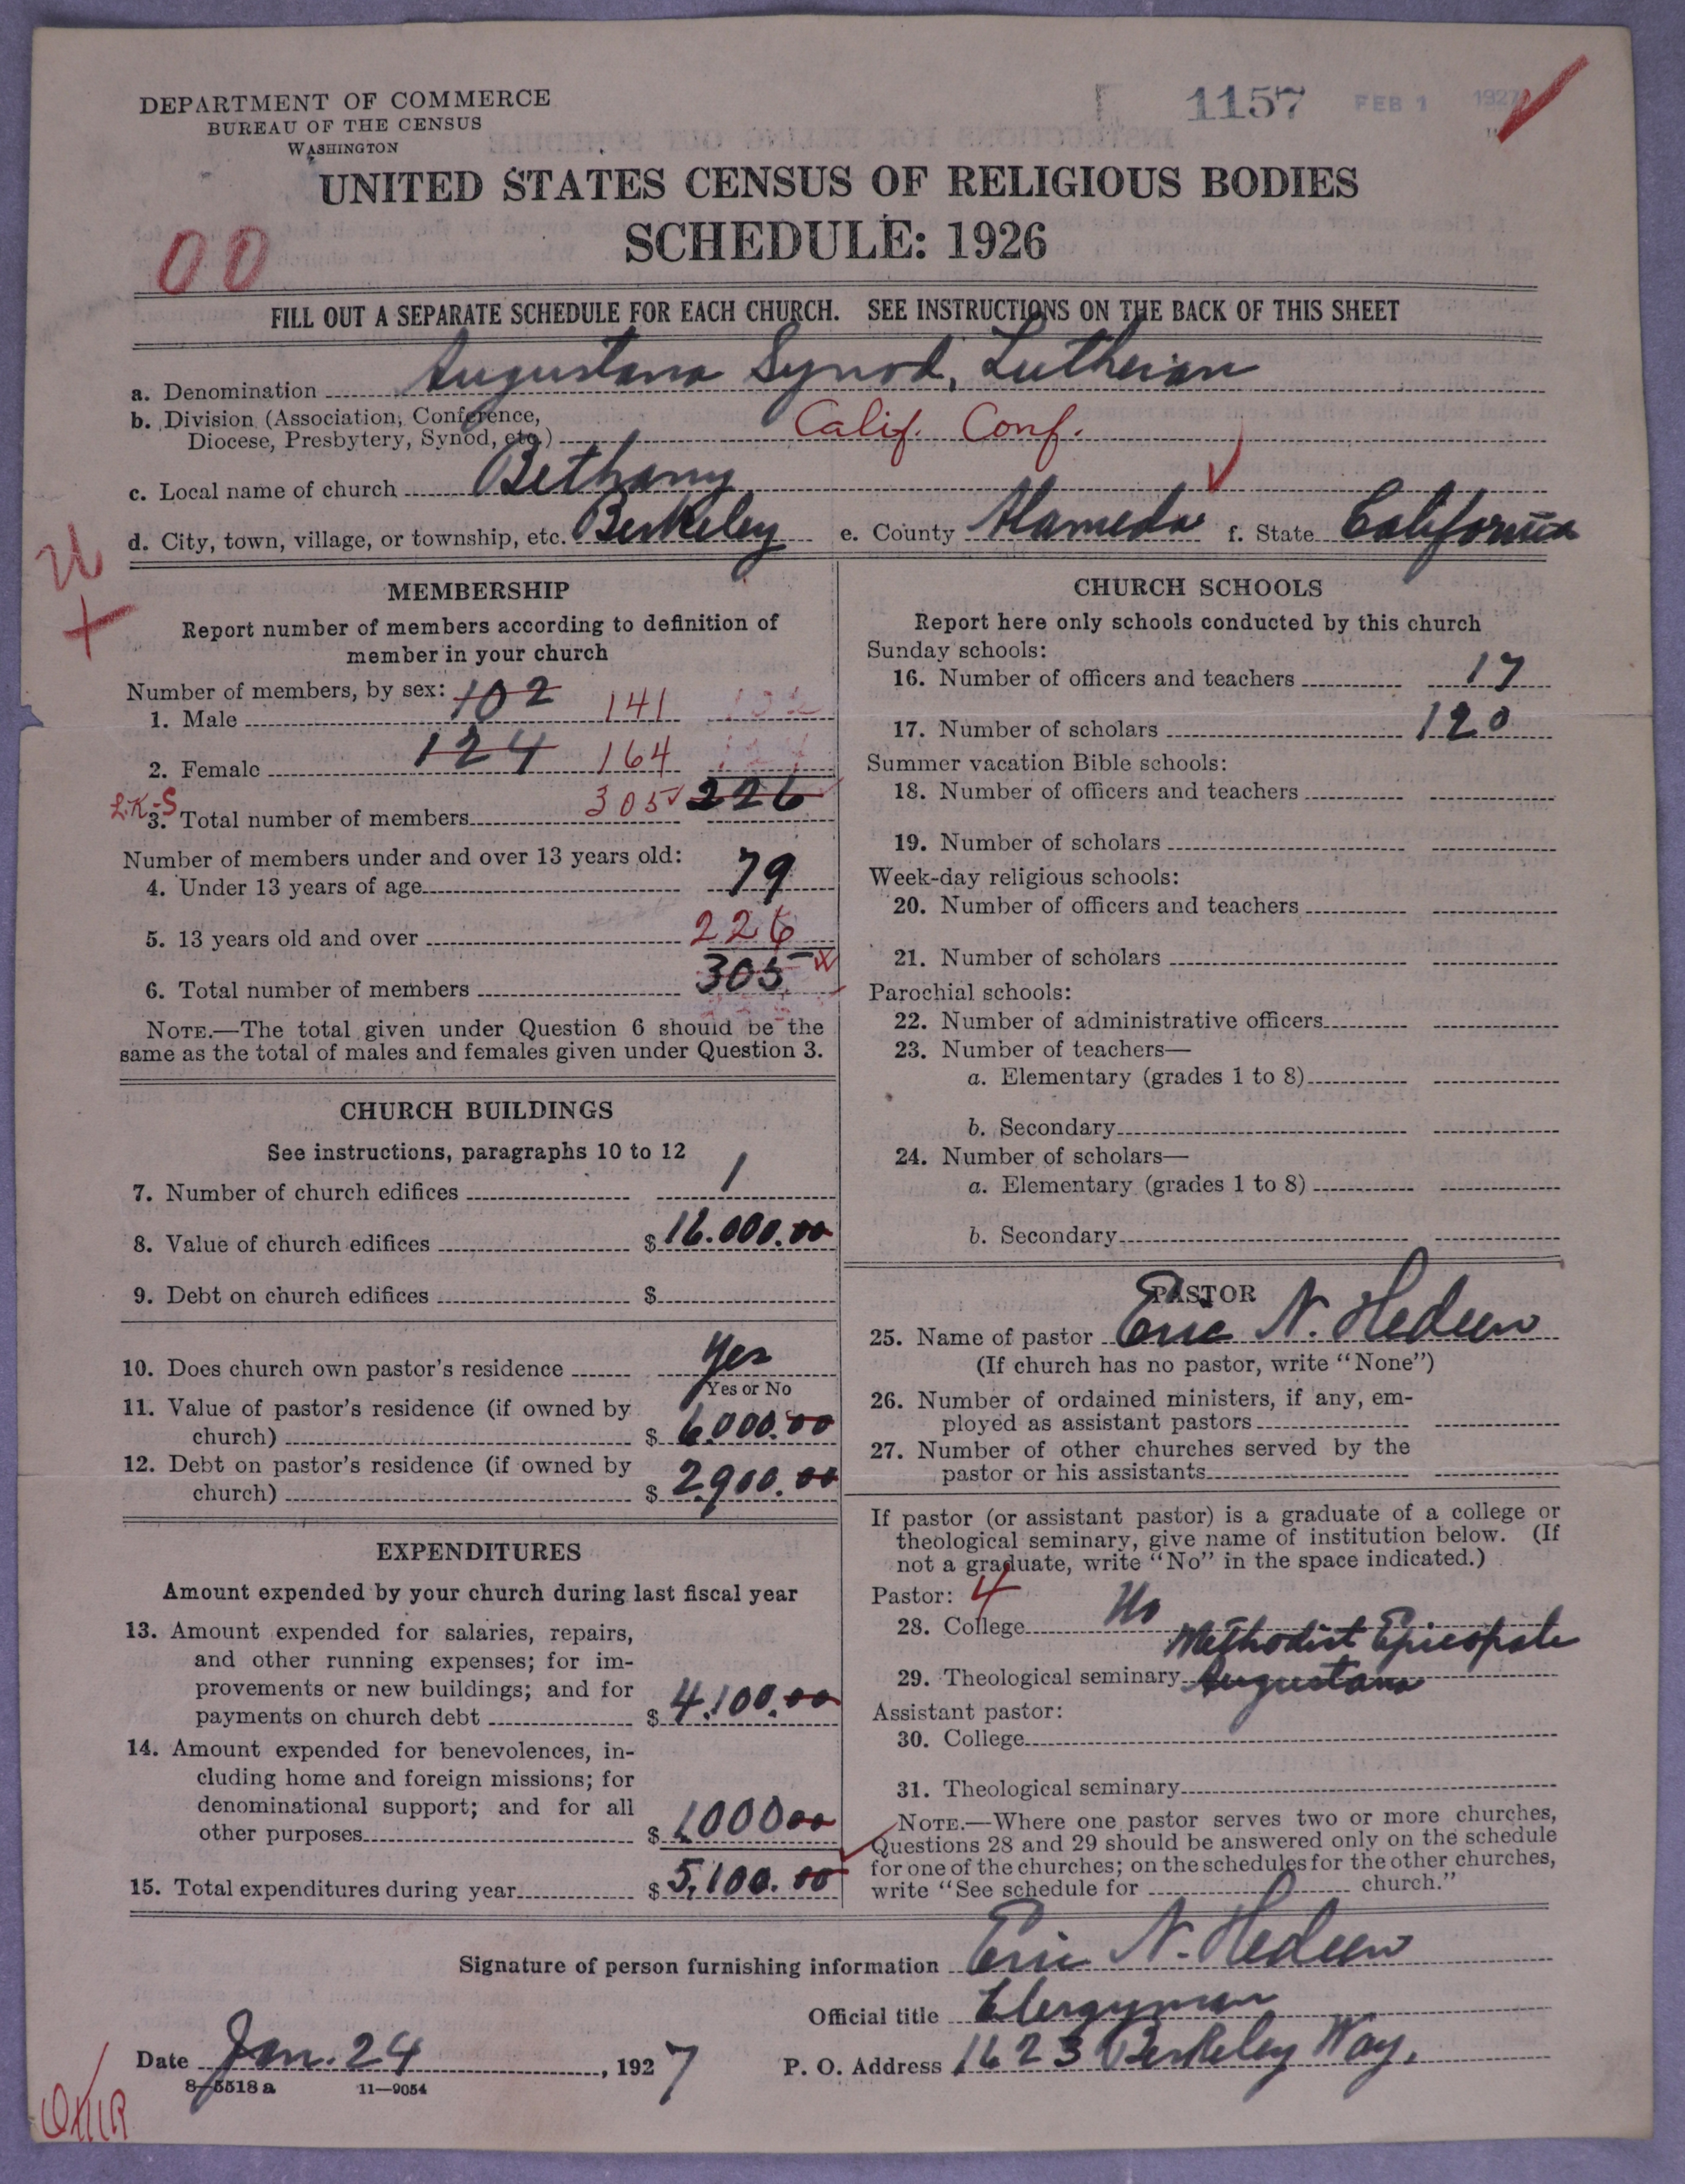 DEPARTMENT OF COMMERCE
BUREAU OF THE CENSUS
WASHINGTON
1157 FEB 1 1927
UNITED STATES CENSUS OF RELIGIOUS BODIES
SCHEDULE: 1926
00
FILL OUT A SEPARATE SCHEDULE FOR EACH CHURCH. SEE INSTRUCTIONS ON THE BACK OF THIS SHEET
a. Denomination Augustana Synod, Lutheran
b. Division (Association, Conference,
Diocese, Presbytery, Synod, etc.) Calif. Conf.
c. Local name of church Bethany
d. City, town, village, or township, etc. Berkeley e. County Alameda f. State California
U
MEMBERSHIP
Report number of members according to definition of
member in your church
Number of members, by sex: 102
1. Male 141 102
2. Female 124 164 124
L.K.-S
3. Total number of members 305 226
Number of members under and over 13 years old:
4. Under 13 years of age 79
5. 13 years old and over 226
6. Total number of members 305
NOTE.—The total given under Question 6 should be the
same as the total of males and females given under Question 3.
CHURCH BUILDINGS
See instructions, paragraphs 10 to 12
7. Number of church edifices 1
8. Value of church edifices $ 16.000.00
9. Debt on church edifices $
10. Does church own pastor's residence Yes
Yes or No
11. Value of pastor's residence (if owned by
church) $ 6000.00
12. Debt on pastor's residence (if owned by
church) $ 2900.00
EXPENDITURES
Amount expended by your church during last fiscal year
13. Amount expended for salaries, repairs,
and other running expenses; for im-
provements or new buildings; and for
payments on church debt $ 4,100.00
14. Amount expended for benevolences, in-
cluding home and foreign missions; for
denominational support; and for all
other purposes $ 1000 00
15. Total expenditures during year $ 5,100.00
CHURCH SCHOOLS
Report here only schools conducted by this church
Sunday schools:
16. Number of officers and teachers 17
17. Number of scholars 120
Summer vacation Bible schools:
18. Number of officers and teachers
19. Number of scholars
Week-day religious schools:
20. Number of officers and teachers
21. Number of scholars
Parochial schools:
22. Number of administrative officers
23. Number of teachers—
a. Elementary (grades 1 to 8)
b. Secondary
24. Number of scholars—
a. Elementary (grades 1 to 8)
b. Secondary
PASTOR
25. Name of pastor Eric N. Hedeen
(If church has no pastor, write "None")
26. Number of ordained ministers, if any, em-
ployed as assistant pastors
27. Number of other churches served by the
pastor or his assistants
If pastor (or assistant pastor) is a graduate of a college or
theological seminary, give name of institution below. (If
not a graduate, write "No" in the space indicated.)
Pastor: 4
28. College No
Methodist Episcopale
29. Theological seminary Augustana
Assistant pastor:
30. College
31. Theological seminary
NOTE.—Where one pastor serves two or more churches,
Questions 28 and 29 should be answered only on the schedule
for one of the churches; on the schedules for the other churches,
write "See schedule for church."
Signature of person furnishing information Eric N. Hedeen
Official title Clergyman
Date Jan. 24, 1927 P. O. Address 1623 Berkeley Way.
8-5518 a 11-9054